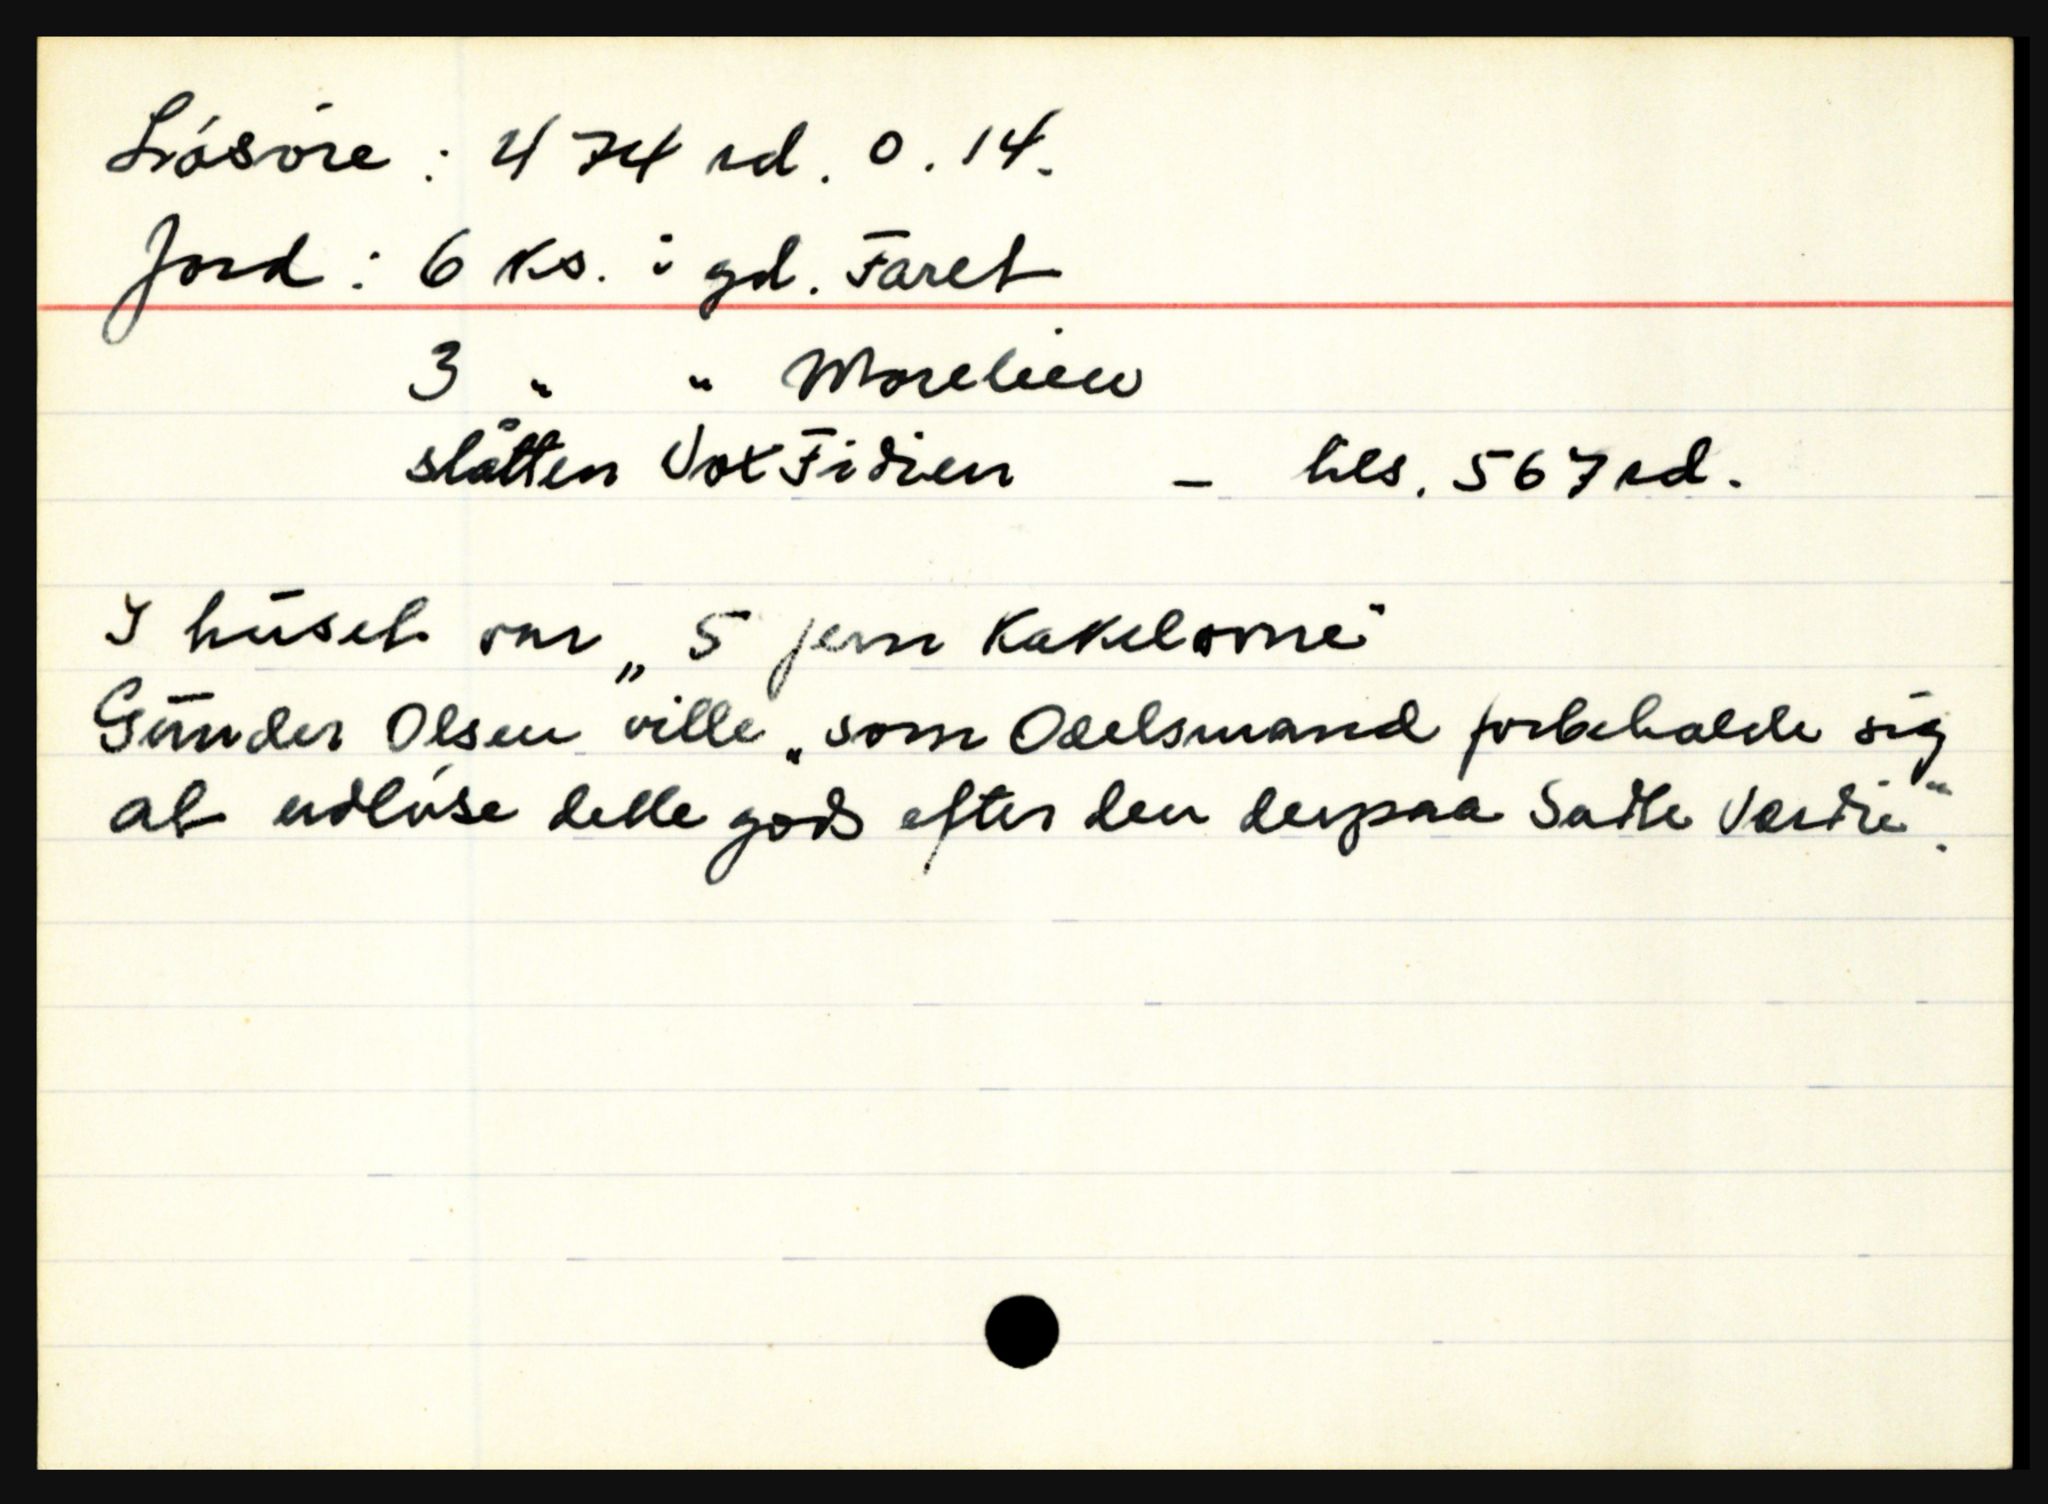 Lösöre : 474 rd. 0. 14.
Jord : 6 ks. i gd. Faret
3 " " Morelien
slåtten Voxfidien - tils. 567 rd.
I huset var „5 jern Kakelovne"
Gunder Olsen ville „som Odelsmand forbeholde sig
at udlöse dette gods efter den derpaa Sadte Verdie".